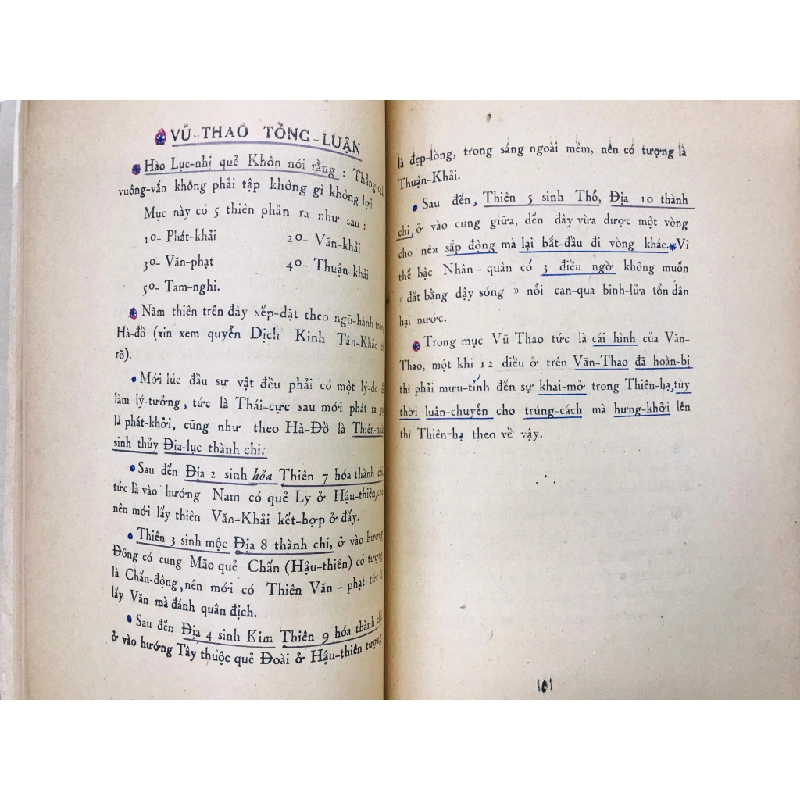 VŨ-THAO TỔNG-LUẬN
Hào Lục-nhị quẻ Khôn nói rằng : Thẳng
vuông-vắn không phải tập không gì không lợi
Mục này có 5 thiên phân ra như sau :
10- Phát-khải 20- Văn-khải
30- Văn-phạt 40- Thuận-khải
50- Tam-nghi.
Năm thiên trên đây xếp-đặt theo ngũ-hành trong
Hà-đồ (xin xem quyển Dịch Kinh Tân-Khảo
rõ).
Mới lúc đầu sự vật đều phải có một lý-do để
làm lý-tưởng, tức là Thái-cực sau mới phát ra gọi
là phát-khởi, cũng như theo Hà-Đồ là Thiên-nhất
sinh thủy Địa-lục thành chi.
Sau đến Địa 2 sinh hỏa Thiên 7 hóa thành chi,
tức là vào hướng Nam có quẻ Ly ở Hậu-thiên, cho
nên mới lấy thiên Văn-Khải kết-hợp ở đấy.
Thiên 3 sinh mộc Địa 8 thành chi, ở vào hướng
Đông có cung Mão quẻ Chấn (Hậu-thiên) có tượng
là Chấn-động, nên mới có Thiên Văn-phạt tức là
lấy Văn mà đánh quân địch.
Sau đến Địa 4 sinh Kim Thiên 9 hóa thành chi
ở vào hướng Tây thuộc quẻ Đoài ở Hậu-thiên tượng
là đẹp-lòng, trong sáng ngoài mềm, nên có tượng là
Thuận-Khải.
Sau đến, Thiên 5 sinh Thổ, Địa 10 thành
chi, ở vào cung giữa, đến đây vừa được một vòng
cho nên sắp động mà lại bắt-đầu đi vòng khác. Vì
thế bậc Nhân-quân có 3 điều ngờ không muốn
« đất bằng dậy sóng » nổi can-qua binh-lửa tổn dân
hại nước.
Trong mục Vũ-Thao tức là cái hình của Văn-
Thao, một khi 12 điều ở trên Văn-Thao đã hoàn-bị
thì phải mưu-tính đến sự khai-mở trong Thiên-hạ, tùy
thời luân-chuyển cho trúng-cách mà hưng-khởi lên
thì Thiên-hạ theo về vậy.
101